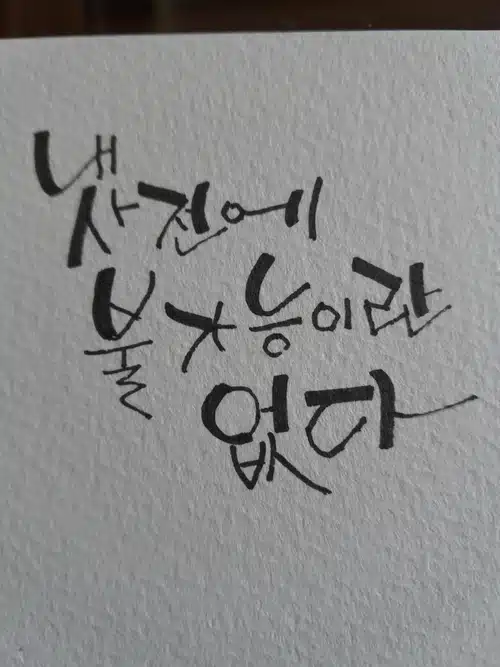 내 사전에
불가능이란
없다